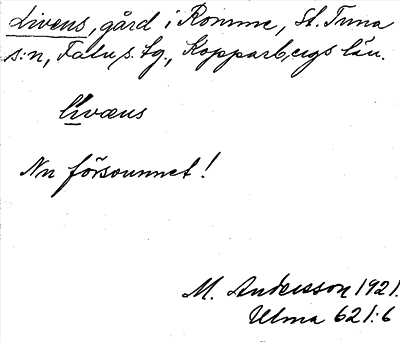 Livens, gård i Romme, St. Tuna
s:n, Falu s. tg., Kopparbergs län.
livæns
Nu försvunnet!
M. Andersson 1921.
Ulma 621:6